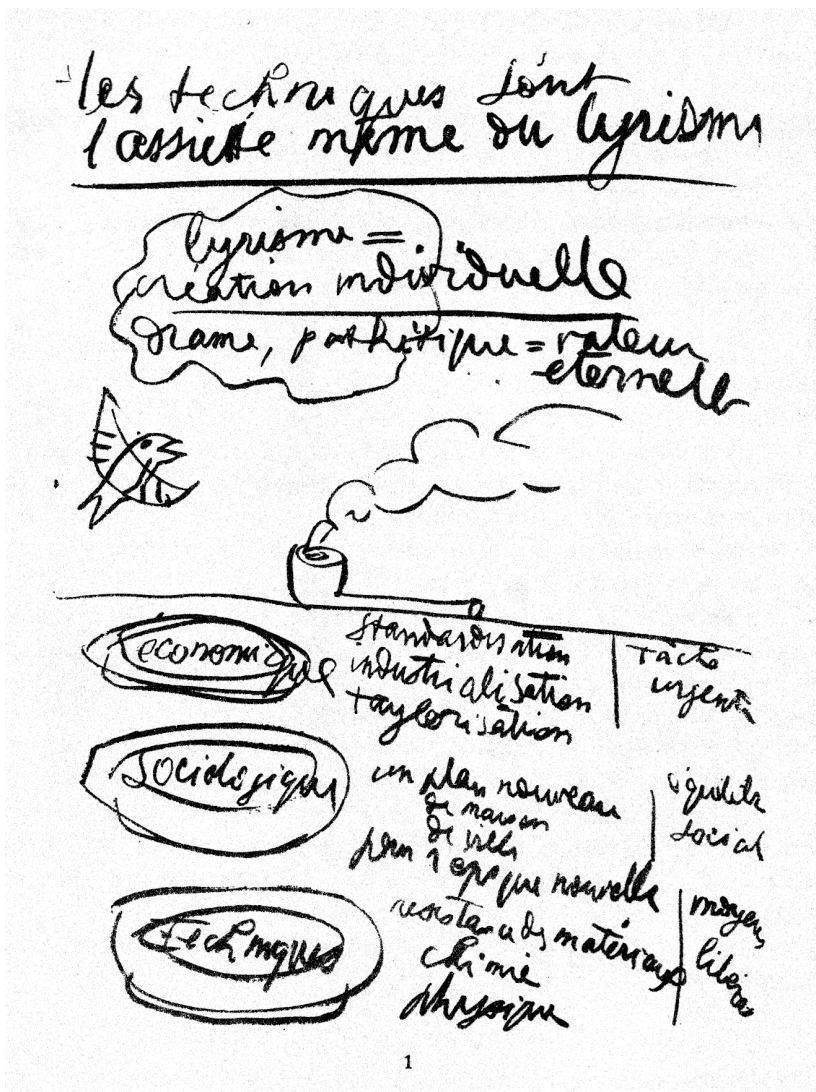 les techniques sont
l'assiette même du lyrisme
lyrisme =
création individuelle
drame, pathétique = valeur
eternelle
économique
standardisation
industrialisation
taylorisation
tâche
urgente
sociologique
un plan nouveau
de maison
de ville
pour l'epoque nouvelle
social
techniques
resistance des matériaux
chimie
physique
moyens
1